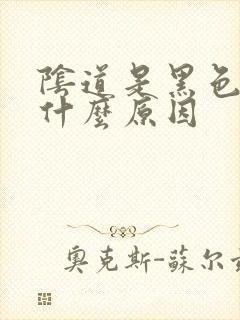 陰道是黑色
什麼原因
奧克斯-蘇尔